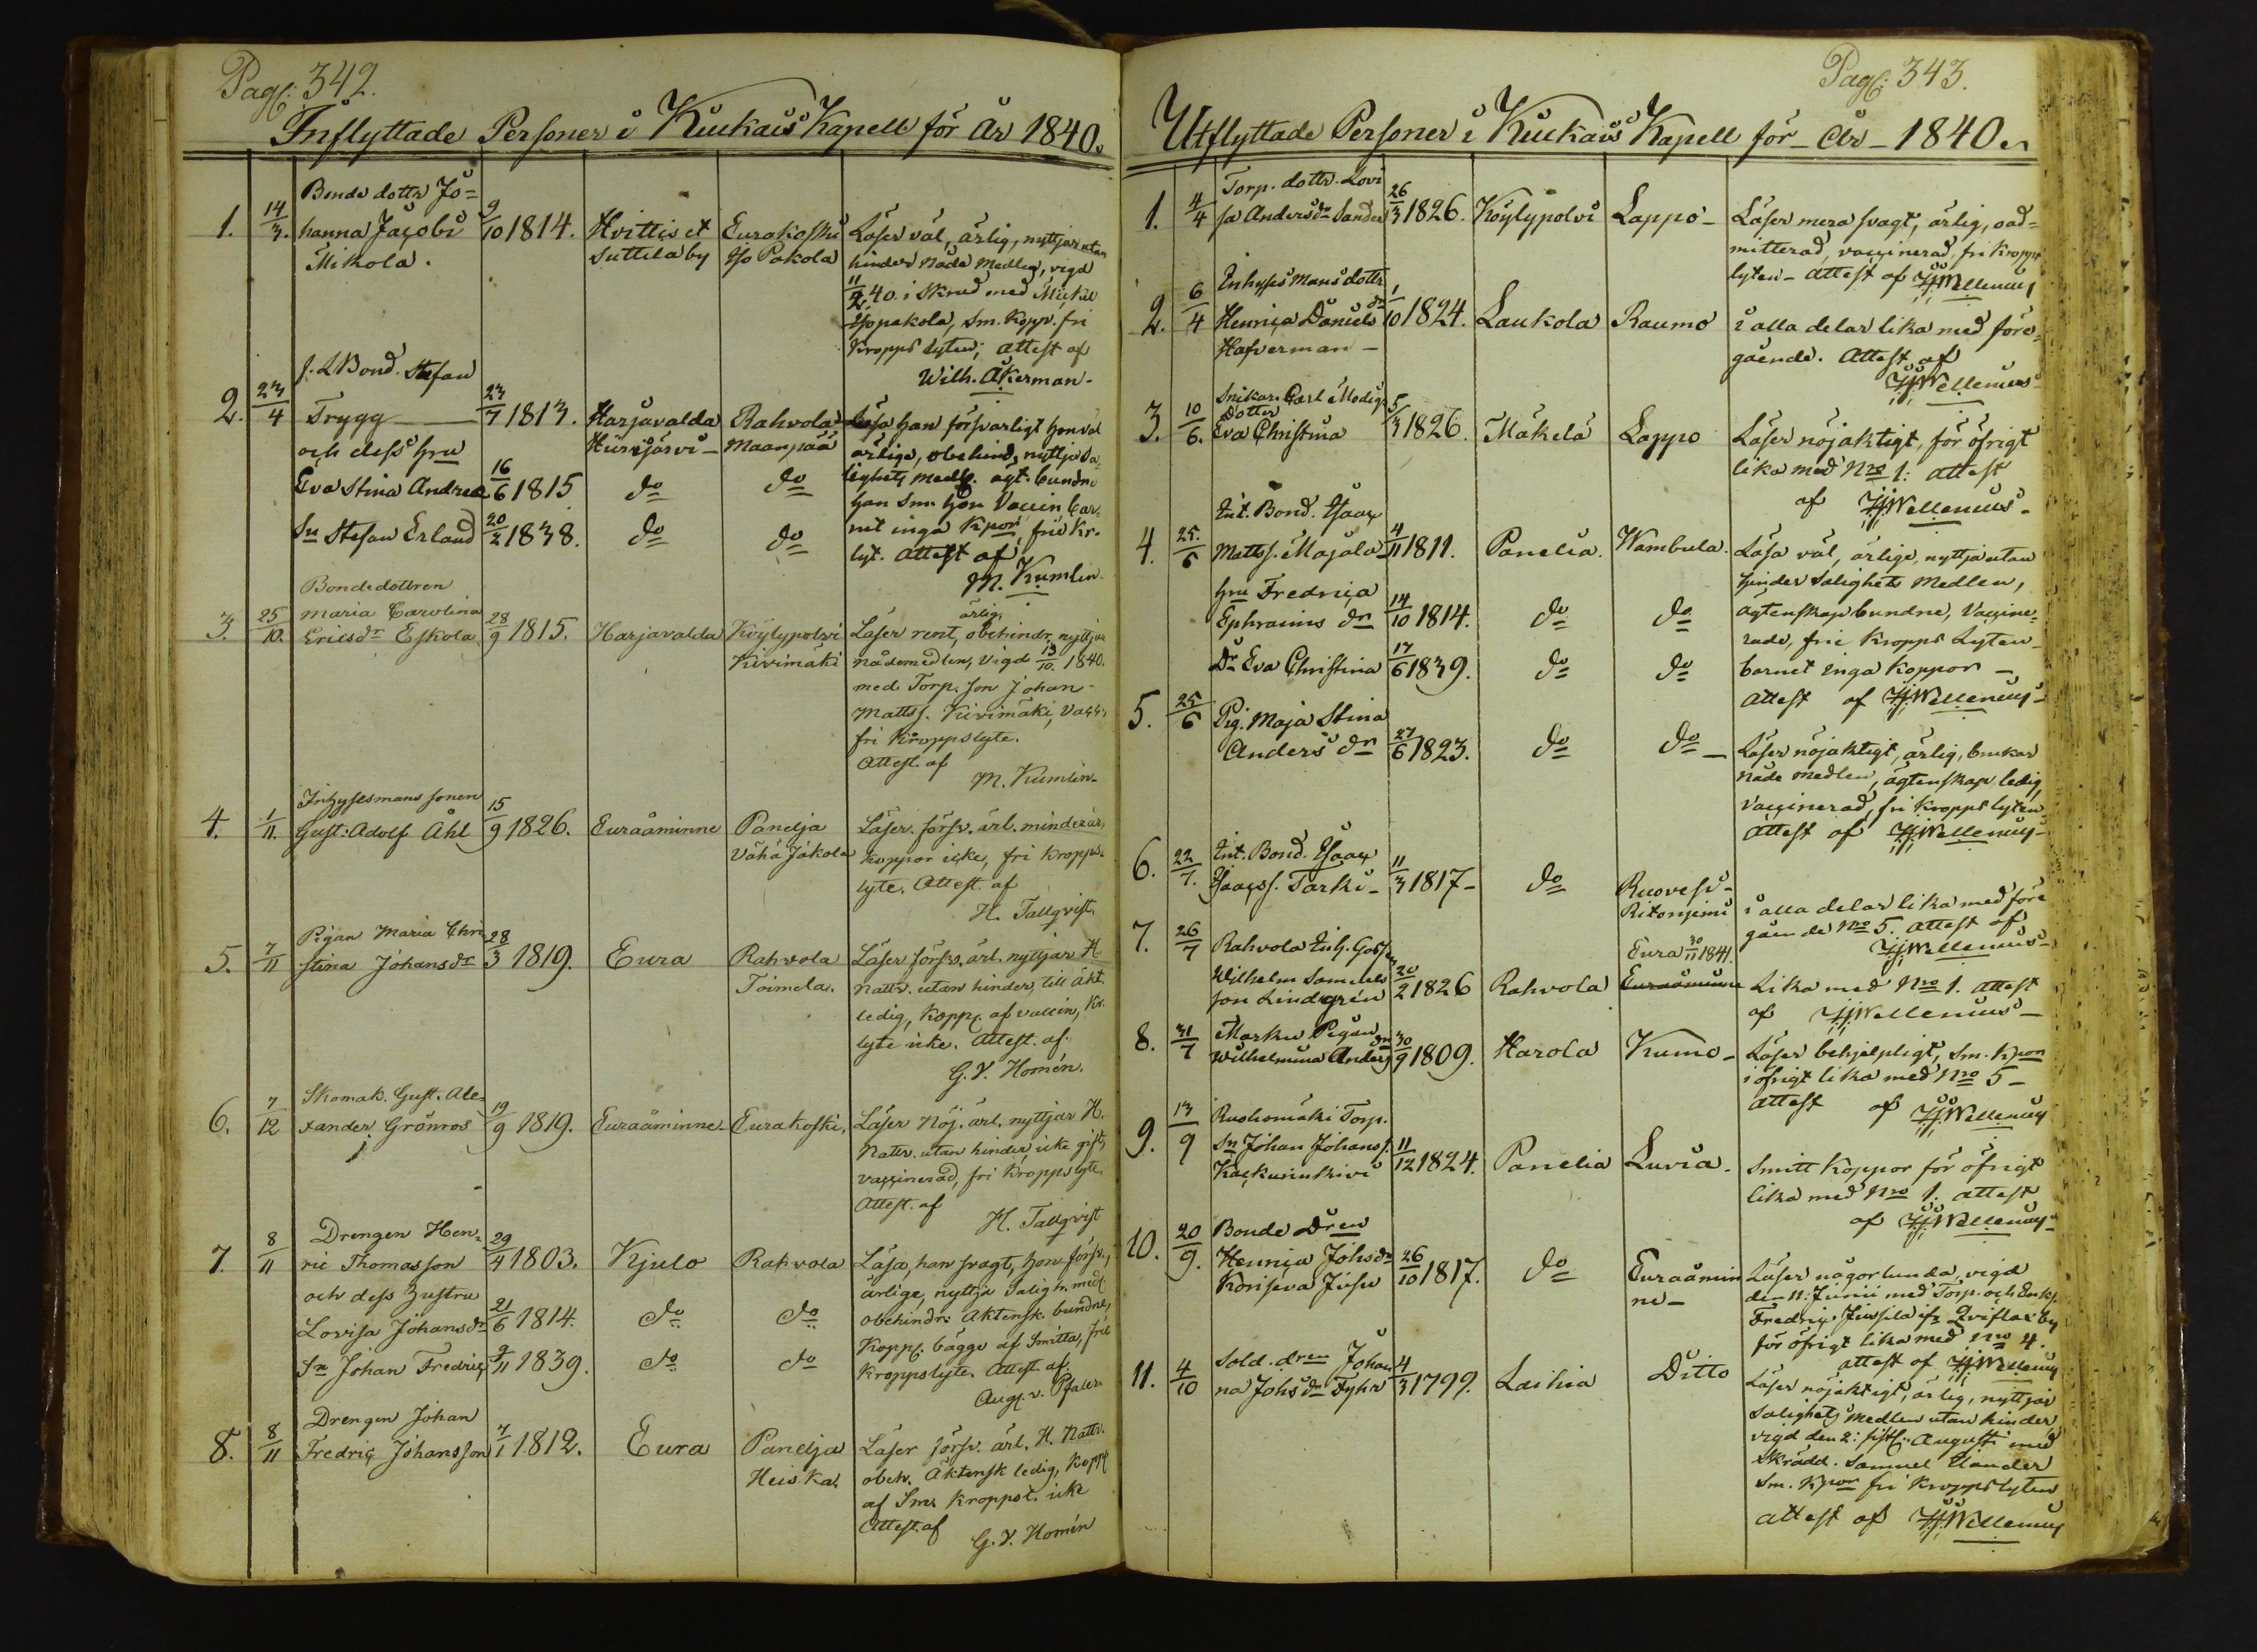 Pag: 342.
Inflyttade Personer i Kiukais Kapell för år 1840.
1. 14/3. Bonde dottr Jo=
hanna Jacobi
Mikola.
9/10 1814.
Hvittis et
Suttila by
Eurakoski
Iso Pakola
Läser väl, ärlig, nyttjar utan
hinder Nåde Medlen, vigd
11/2 40 i Skrud med Mickel
Isopakola, Sm. Kopp. fri
Kropps Lyten; attest af
Wilh. Åkerman.
2. 23/4 f. L Bond. Stefan
Trygg
23/7 1813.
Harjavalda
Hiirijärvi
Rahvola
Maanpää
Läsa han försvarligt hon väl
ärlige, obehind, nyttja Sa
lighets medl. ägt. bundne
han Sm. hon Vaccin bar
net inga Kpor, frie Kr.
lyt. Attest af
M. Kumlin
och dess hru
Eva Stina Andrea
16/6 1815
do
do
Sn Stefan Erland
20/2 1838.
do
do
3. 25/10. Bondedottren
Maria Carolina
Ericsdr Eskola
28/9 1815.
Harjavalda
Köylypolvi
Kivimäki
ärlig,
Läser rent, obehindr. nyttjar
nådemedlen, Vigd 13/10. 1840.
med Torp. Son Johan
Matts s. Kivimäki, Vacc.
fri Kroppslyte.
Attest. af
M. Kumlin
4. 1/11. Inhysesmans sonen
Gust: Adolf Åhl
15/9 1826.
Euraåminne
Panelja
Vähä Jakola
Läser försv. ärl. minderår,
Koppor icke, fri Kropps=
lyte. Attest. af
H. Tallqvist.
5. 7/11 Pigan Maria Chri
stina Johansdr
28/3 1819.
Eura
Rahvola
Toimela.
Läser försv. ärl. nyttjar H.
Nattv. utan hinder, till äkt.
ledig, Kopp. af vaccin, Kr.
lyte icke. Attest. af
G. V. Homén.
6. 7/12 Skomak. Gust. Ale=
xander Grönros
19/9 1819.
Euraåminne
Eurakoski,
Läser Nöj. ärl. nyttjar H.
Nattv. utan hinder, icke gift,
vaccinerad, fri Kroppslyte.
Attest. af
H. Tallqvist
7. 8/11 Drengen Hen=
ric Thomasson
29/4 1803.
Kjulo
Rahvola
Läsa, han svagt, hon försv.,
ärlige, nyttja Salighm. med.
obehindr. Äktensk. bundne,
Kopp. bägge af Smitta, frie
Kroppslyte. Attest. af
Aug. v. Pfaler
och dess hustru
Lovisa Johansdr
21/6 1814.
do
do
Sn Johan Fredric
9/11 1839.
do
do
8. 8/11 Drengen Johan
Fredric Johansson
7/1 1812.
Eura
Panelja
Heiska.
Läser försv. ärl. H. Nattv.
obeh. Äktensk ledig, Kopp
af Sm. Kroppsl. icke
Attest. af
G. V. Homén
Pag: 343.
Utflyttade Personer i Kiukais Kapell för År 1840.
1. 4/4 Torp. dottr. Lovi
sa Anders dr Sander
26/3 1826.
Köylypolvi
Lappo
Läser mera svagt, ärlig, oad=
mitterad, vaccinerad, fri Kropps
lyten. Attest af H.J. Wellenius
2. 6/4 Inhyses mans dottr
Henrica Daniels dr
Hafverman
1/10 1824.
Laukola
Raumo
i alla delar lika med före=
gående. Attest af
H.J. Wellenius
3. 10/6. Snikar. Carl Modigs
Dotter
Eva Christina
5/3 1826.
Mäkelä
Lappo
Läser nöjaktigt, för öfrigt
lika med Nro 1. attest
af H.J. Wellenius
4. 25/6 Int. Bond. Isaac
Matts s. Majala
4/11 1811.
Panelia.
Wambula.
Läsa väl, ärlige, nyttja utan
hinder Salighets Medlen,
ägtenskap bundne, Vaccine=
rade, frie Kropps Lyten
barnet inga Koppor
Attest af H.J. Wellenius
hru Fredrica
Ephraims dr
14/10 1814.
do
do
Dr Eva Christina
17/6 1839.
do
do
5. 25/6 Pig. Maja Stina
Anders dr
27/6 1823.
do
do
Läser nöjaktigt, ärlig, brukar
Nåde Medlen, ägtenskap ledig
Vaccinerad, fri Kropps lyten
Attest af H.J. Wellenius
6. 22/7. Int. Bond. Isaac
Isacs s. Tarki
11/3 1817
do
Ruovesi
Ritoniemi
i alla delar lika med före
gåen de Nro 5. attest af
H.J. Wellenius
7. 26/7 Rahvola Inh. Goss
Wilhelm Samuels
son Lindgrén
20/2 1826
Rahvola
Eura 30/11 1841.
Euraåminne
Lika med Nro 1. attest
af H.J. Wellenius
8. 31/7 Marku Pigan
Wilhelmina Anders dr
30/9 1809.
Harola
Kumo
Läser behjelpligt, Sm. Kpor
i öfrigt lika med Nro 5
Attest af H.J. Wellenius
9. 13/9 Ruohomäki Torp.
Sn Johan Johans s.
11/12 1824.
Panelia
Luvia.
Smitt Koppor för öfrigt
lika med Nro 1. attest
af H.J. Wellenius
10. 20/9. Bonde Dren
Henrica Johs dr
26/10 1817.
do
Euraåmin
ne
Läser någorlunda, vigd
den 11. Junii med Torp.
för öfrigt lika med Nro 4.
attest af H.J. Wellenius
11. 4/10 Sold. dren Johan
na Johs dr Fyhr
4/3 1799.
Laihia
Ditto
Läser nöjaktigt, ärlig, nyttjar
Salighets medlen utan hinder
vigd den 2: sistl. Augusti med
Skrädd. Samuel
Sm. Kpor fri Kropps lyten
attest af H.J. Wellenius